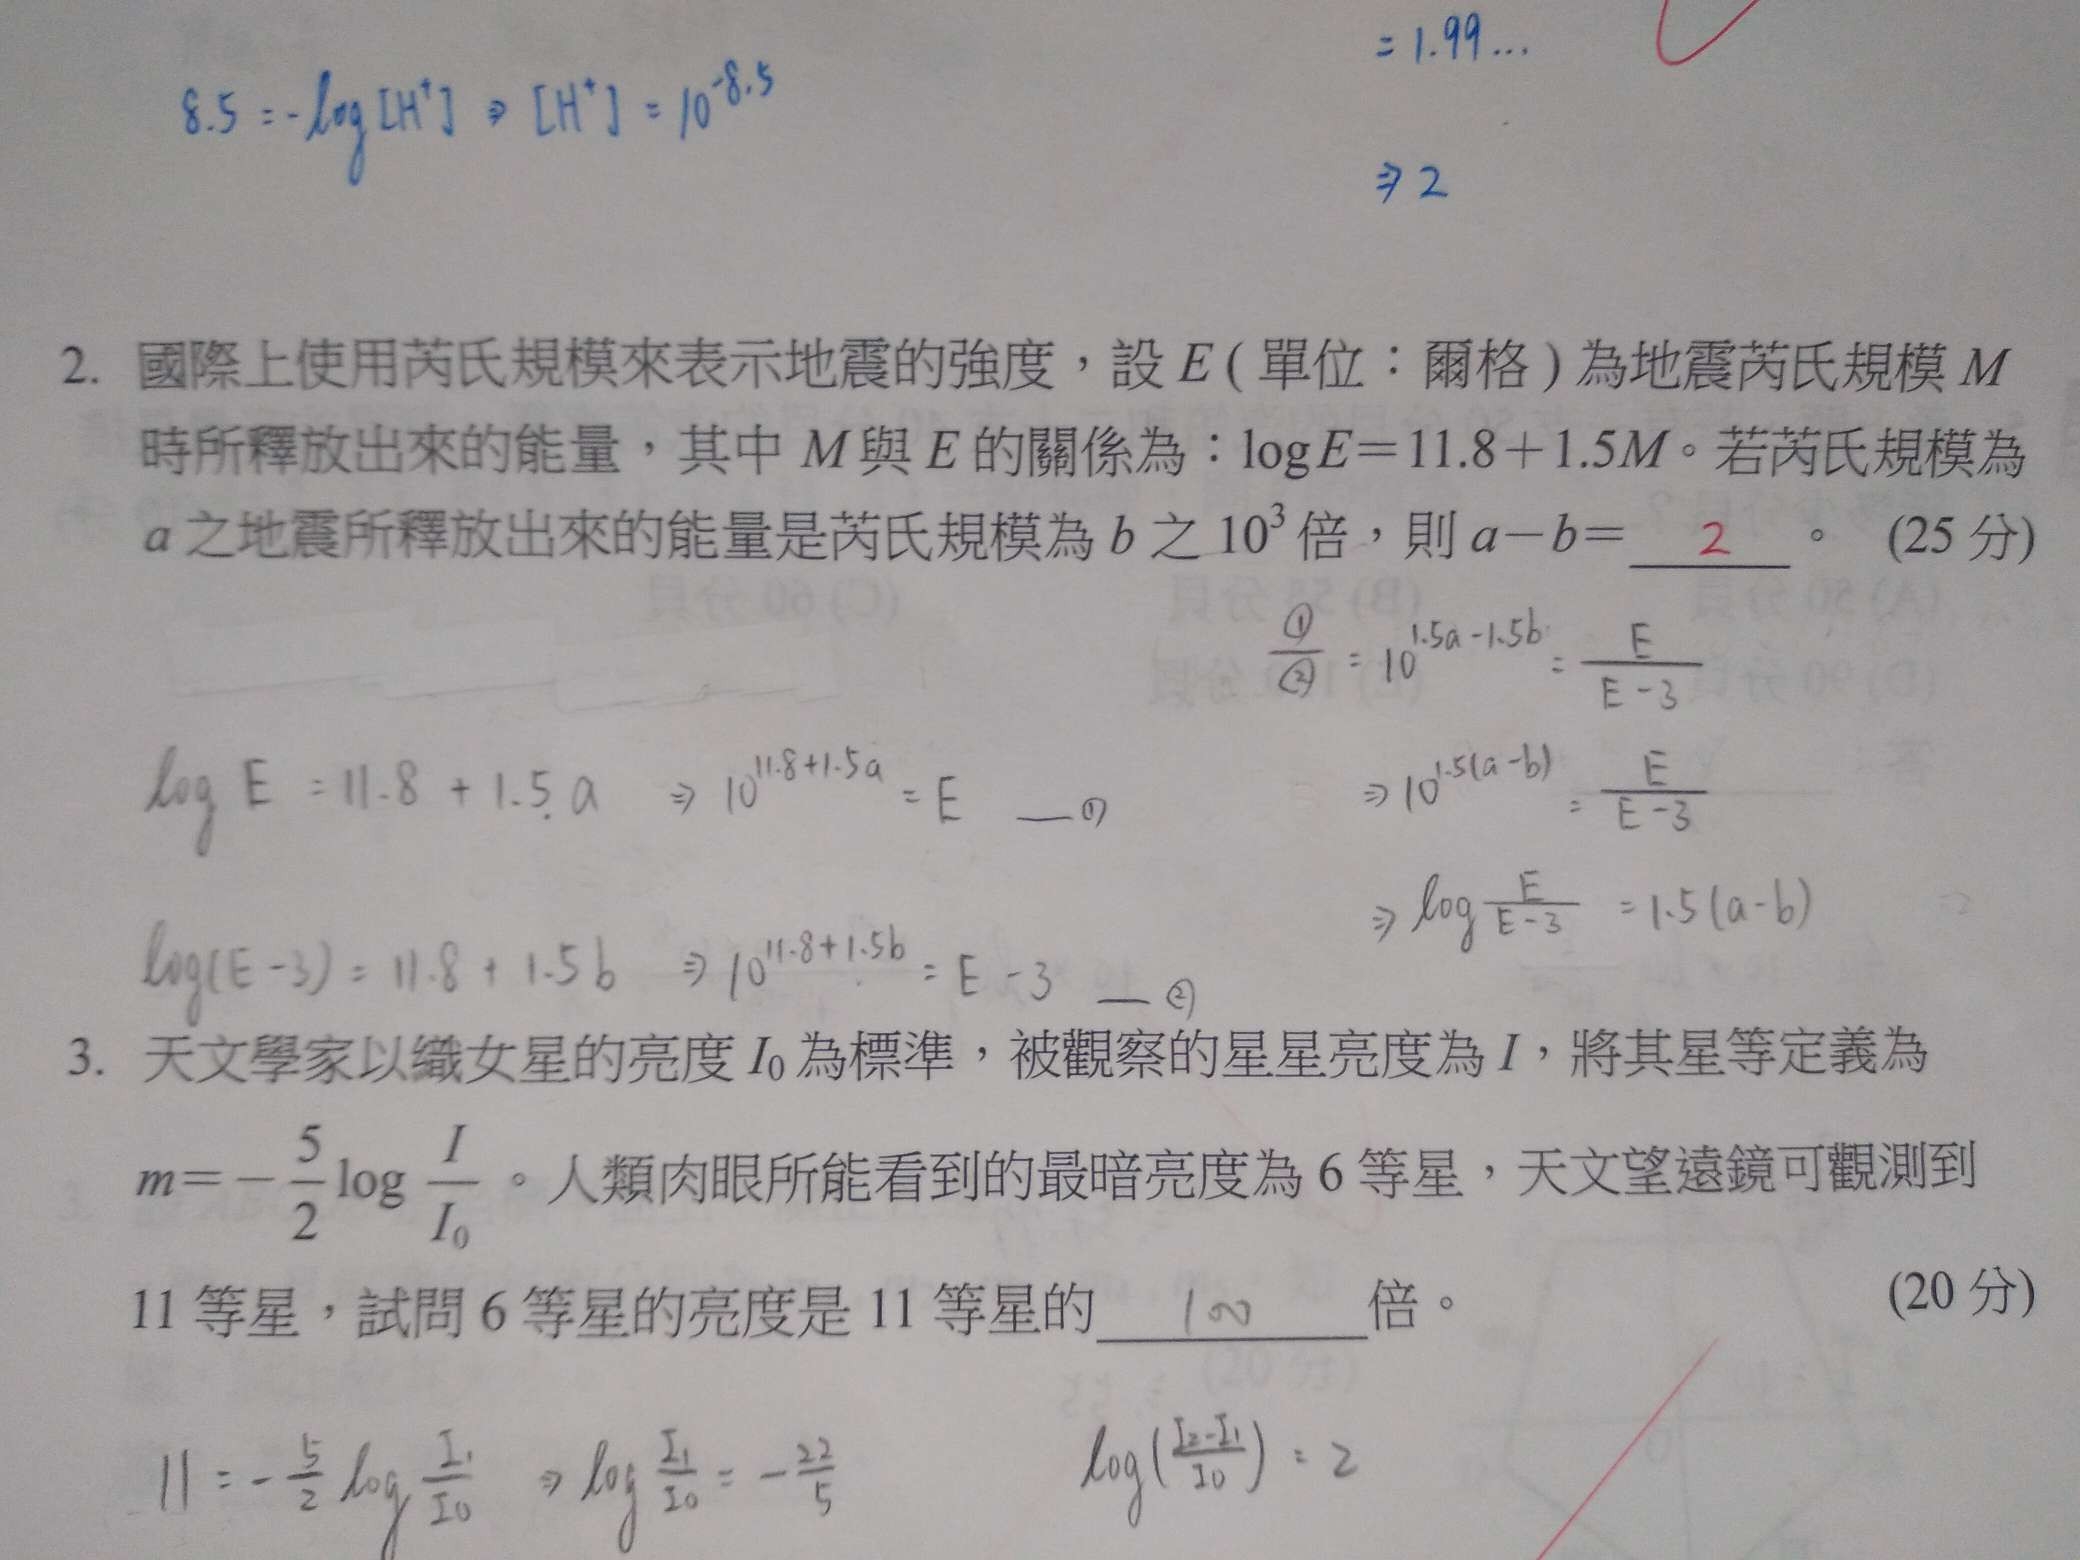 = 1.99...
8.5 = -log[H⁺] ⇒ [H⁺] = 10^-8.5
⇒ 2
2. 國際上使用芮氏規模來表示地震的強度，設 E ( 單位：爾格 ) 為地震芮氏規模 M
時所釋放出來的能量，其中 M 與 E 的關係為：log E＝11.8＋1.5M。若芮氏規模為
a 之地震所釋放出來的能量是芮氏規模為 b 之 10³ 倍，則 a－b＝ 2 。 (25 分)
①/② = 10^(1.5a-1.5b) = E/(E-3)
log E = 11.8 + 1.5a ⇒ 10^(11.8+1.5a) = E —①
⇒ 10^(1.5(a-b)) = E/(E-3)
⇒ log E/(E-3) = 1.5(a-b)
log(E-3) = 11.8 + 1.5b ⇒ 10^(11.8+1.5b) = E-3 —②
3. 天文學家以織女星的亮度 I₀ 為標準，被觀察的星星亮度為 I，將其星等定義為
m＝－5/2 log I/I₀。人類肉眼所能看到的最暗亮度為 6 等星，天文望遠鏡可觀測到
11 等星，試問 6 等星的亮度是 11 等星的 100 倍。 (20 分)
11 = -5/2 log I₁/I₀ ⇒ log I₁/I₀ = -22/5
log(I₂-I₁/I₀) = 2